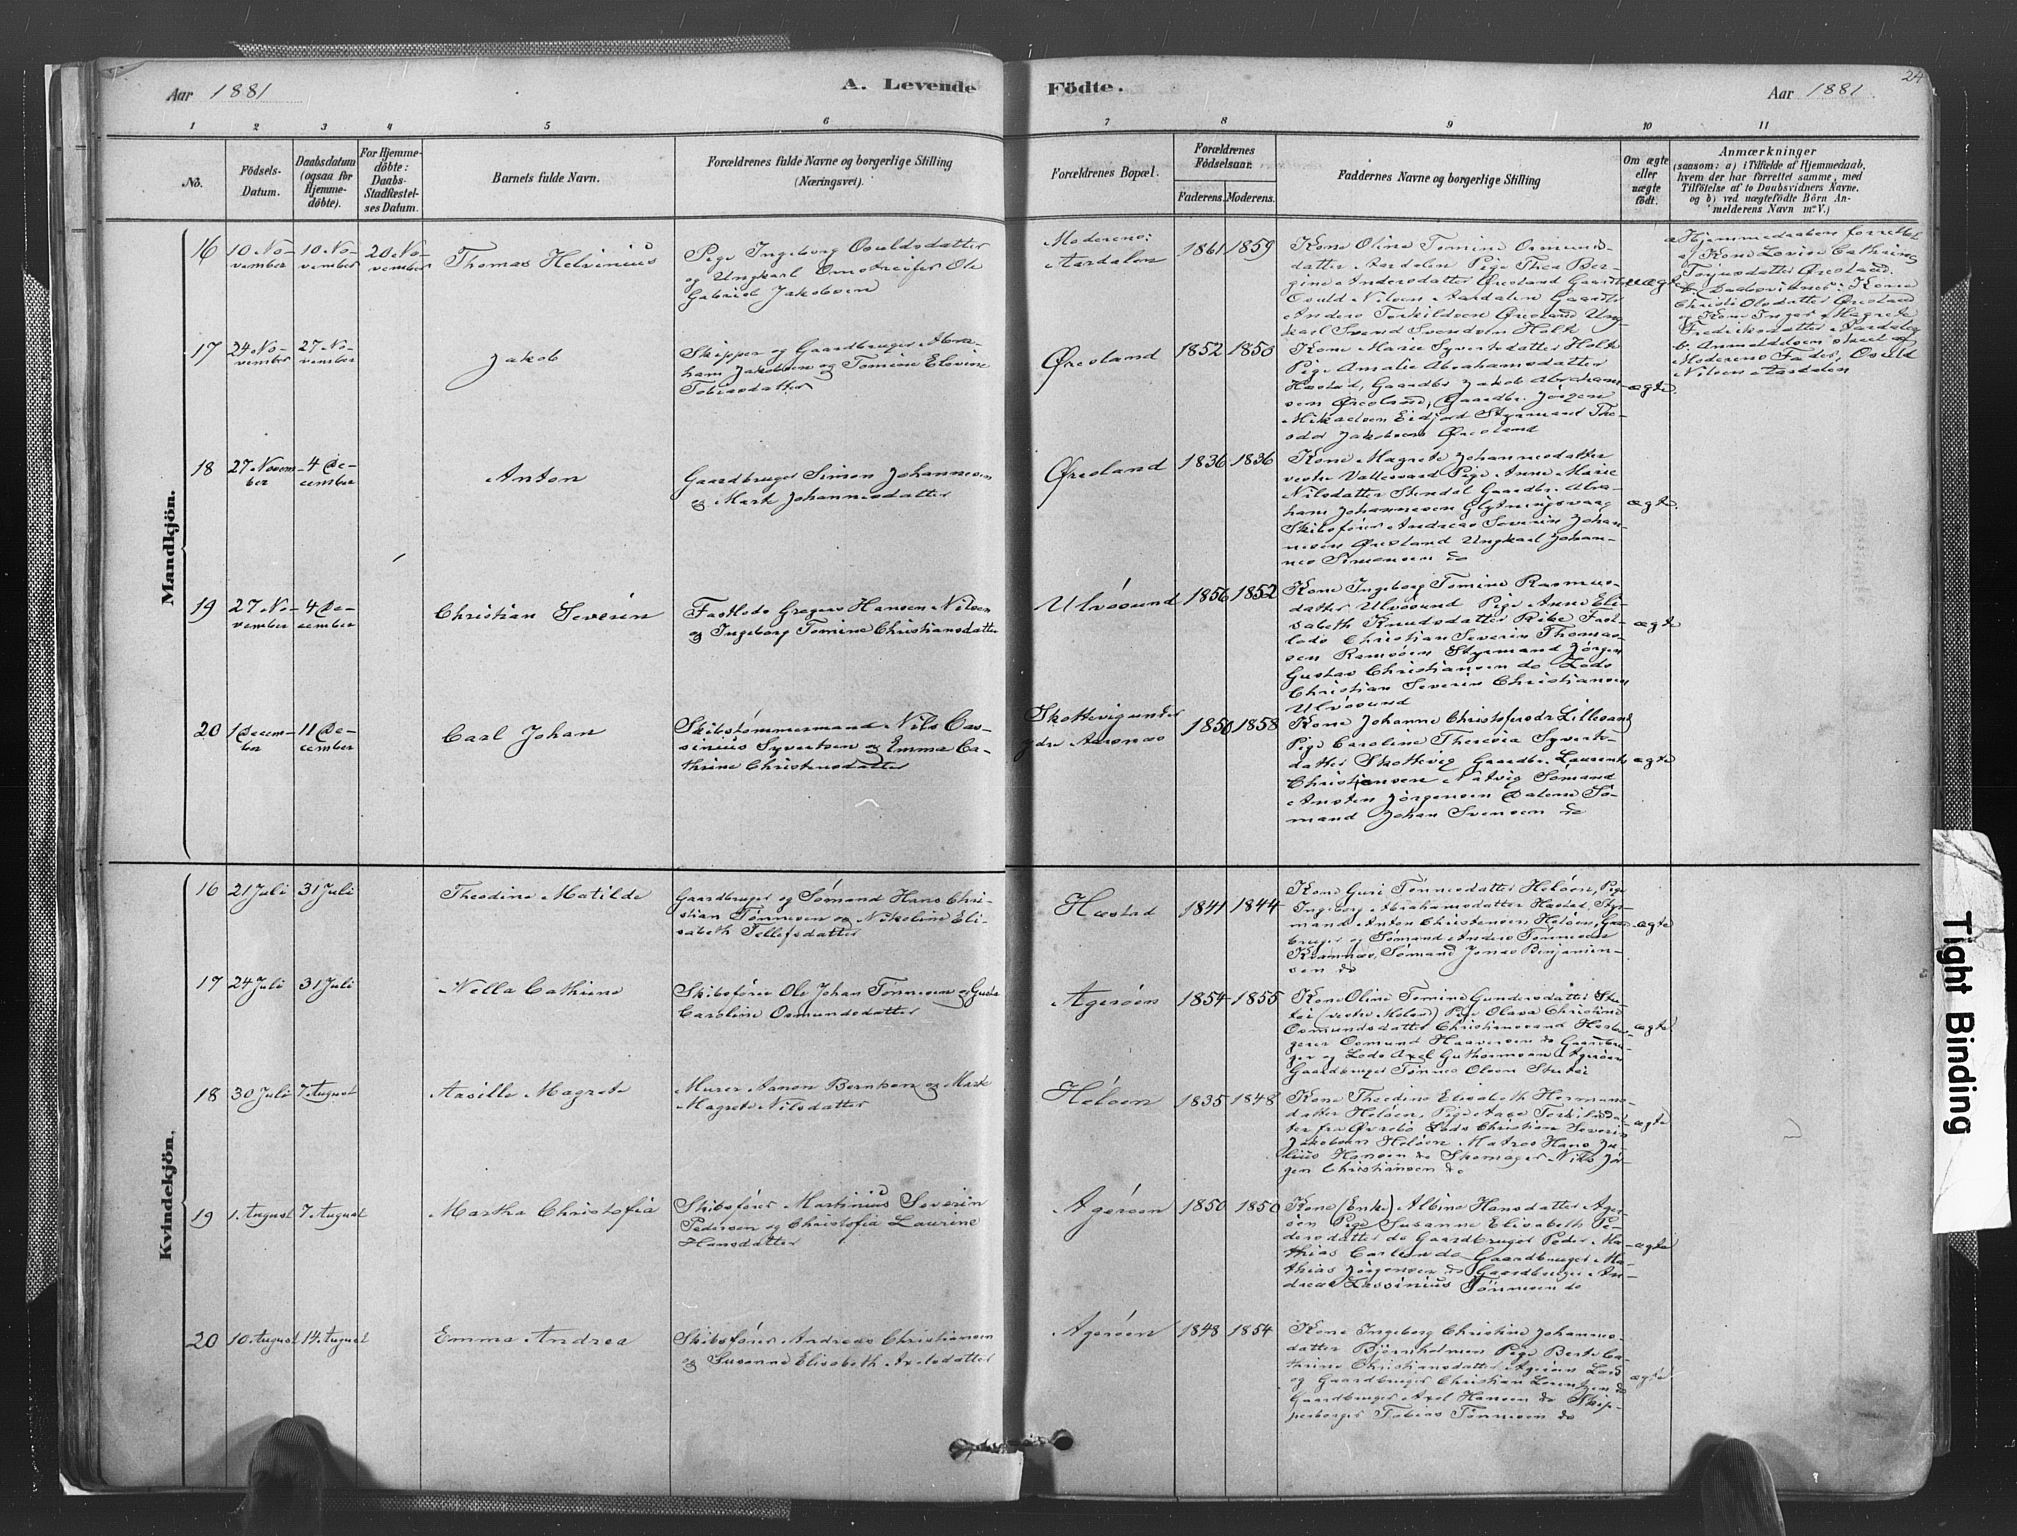 24
Aar 1881
A. Levende
Födte.
Aar 1881
1 2 3 4 5 6 7 8 9 10 11
No.
Födsels-
Datum.
Daabsdatum
(ogsaa for
Hjemme-
döbte).
For Hjemme-
döbte:
Daabs-
Stadfæstel-
ses Datum.
Barnets fulde Navn.
Forældrenes fulde Navne og borgerlige Stilling
(Næringsvei).
Forældrenes Bopæl.
Forældrenes
Födselsaar.
Faderens. Moderens.
Faddernes Navne og borgerlige Stilling
Om ægte
eller
uægte
födt.
Anmærkninger
(saasom: a) i Tilfælde af Hjemmedaab,
hvem der har forrettet samme, med
Tilföielse af to Daabsvidners Navne.
og b) ved uægtefödte Börn An-
melderens Navn m. V.)
Mandkjön.
16
10 No-
vember
10 No-
vember
20 No-
vember
Thomas Helvinius
Pige Ingeborg Osuldsdatter
og Ungkarl Ole
Gabriel Jakobsen
Moderens:
Aardalen
1861 1859
Kone Oline Tomine Osmunds-
datter Aardalen Pige Thea Ber-
gine Andersdatter Øresland Gaardbr
Osuld Nilsen Aardalen Gaardbr
Anders Torkildsen Øresland Ung-
karl Svend Svendsen Holte
uægte
a. Hjemmedaaben forrettet
af Kone Lovise Cathrine
Torjusdatter Øresland.
Daabsvidner: Kone
Christi Olsdatter Øresland
og Kone Inger Magrete
Fredriksdatter Aardalen
b. Anmeldelsen skeet af
Moderens Fader, Osuld
Nilsen Aardalen
17
24 No-
vember
27 No-
vember
Jakob
Skipper og Gaardbruger Abra-
ham Jakobsen og Tomine Elevine
Tobiasdatter
Øresland
1852 1850
Kone Marie Syvertsdatter Holte
Pige Amalie Abrahamsdatter
Hæstad, Gaardbr Jakob Abraham-
sen Øresland, Gaardbr. Jørgen
Mikaelsen Eidjord Styrmand Theo-
dor Jakobsen Øresland
ægte
18
27 Novem-
ber
4 De-
cember
Anton
Gaardbruger Simon Johannesen
og Marte Johannesdatter
Øresland
1836 1836
Kone Magrete Johannesdatter
vestre Vallesværd Pige Anne Marie
Nilsdatter Stendal Gaardbr. Abra-
ham Johannesen
Skibsfører Andreas Severin Johan-
nesen Øresland Ungkarl Johan-
nes Simonsen do
ægte
19
27 No-
vember
4 De-
cember
Christian Severin
Fastlods Gregers Hansen Nilsen
og Ingeborg Tomine Christiansdatter
Ulvøsund
1856 1852
Kone Ingeborg Tomine Rasmus-
datter Ulvøsund Pige Anne Eli-
sabeth Knudsdatter Ribe Fast-
lods Christian Severin Thomas-
sen Ramsøen Styrmand Jørgen
Gustav Christiansen do Lods
Christian Severin Christiansen
Ulvøsund
ægte
20
1 Decem-
ber
11 De-
cember
Carl Johan
Skibstømmermand Nils Cas-
sinius Syvertsen og Emma Ca-
thrine Christensdatter
Skottevig under
ydre Aarsnæs
1850 1858
Kone Johanne Christofersdr Lillesand
Pige Caroline Theresia Syverts-
datter Skottevig Gaardbr. Laurents
Christiansen Natvig Sømand
Ansten Jørgensen Dalene Sø-
mand Johan Svensen do
ægte
Kvindekjön.
16
21 Juli
31 Juli
Theodine Matilde
Gaardbruger og Sømand Hans Chri-
stian Tønnesen og Nikoline Eli-
sabeth Tellefsdatter
Hæstad
1841 1844
Kone Guri Tønnesdatter Heløen, Pige
Ingeborg Abrahamsdatter Hæstad, Styr-
mand Anton Christensen Heløen, Gaard-
bruger og Sømand Anders Tønnesen
Kramnæs, Sømand Jonas Benjamin-
sen do
ægte
17
24 Juli
31 Juli
Nella Cathrine
Skibsfører Ole Johan Tønnesen og Gusta
Caroline Osmundsdatter
Agerøen
1854 1855
Kone Oline Tomine Gundersdatter Stu-
tøi (vestre Molen) Pige Olava Christine
Osmundsdatter Christianssand Herber-
gerer Osmund Haaversen do Gaardbru-
ger og Lods Axel Guthormsen Agerøen
Gaardbruger Tønnes Olsen Stutøi
ægte
18
30 Juli
7 August
Aasille Magrete
Murer Aanon Berntsen og Marte
Magrete Nilsdatter
Heløen
1835 1848
Kone Theodine Elisabeth Hermans-
datter Heløen, Pige Aase Torkildsdat-
ter fra Øvrebø Lods Christian Severin
Jakobsen Heløen Matros Hans Ju-
lius Hansen do Skomager Nils Jør-
gen Christiansen do
ægte
19
1 August
7 August
Martha Christofia
Skibsfører Martinius Severin
Pedersen og Christofia Laurine
Hansdatter
Agerøen
1850 1850
Kone (Enke) Albine Hansdatter Age-
røen Pige Susanne Elisabeth Pe-
dersdatter do Gaardbruger Peder Ma-
thias Carlsen do Gaardbruger Ma-
thias Jørgensen do Gaardbruger An-
dreas Zassinius Tønnesen do
ægte
20
10 August
14 August
Emma Andrea
Skibsfører Andreas Christiansen
og Susanne Elisabeth Axelsdatter
Agerøen
1848 1854
Kone Ingeborg Christine Johannes-
datter Bjørnholmen Pige Berte Ca-
thrine Christiansdatter Agerøen Lods
og Gaardbruger Christian Lorentzen do
Gaardbruger Axel Hansen do Skip-
perborger Tobias Tønnesen do
ægte
Tight Binding